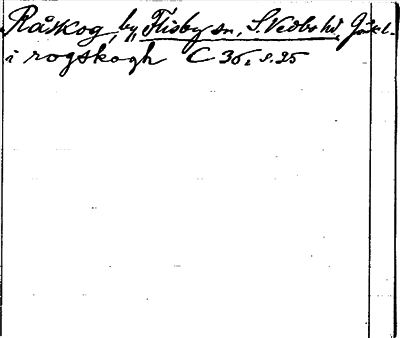 Råskog, by, Flisby sn, S. Vedbo hd, Jönk. l.
i rogskogh C 36, s. 25